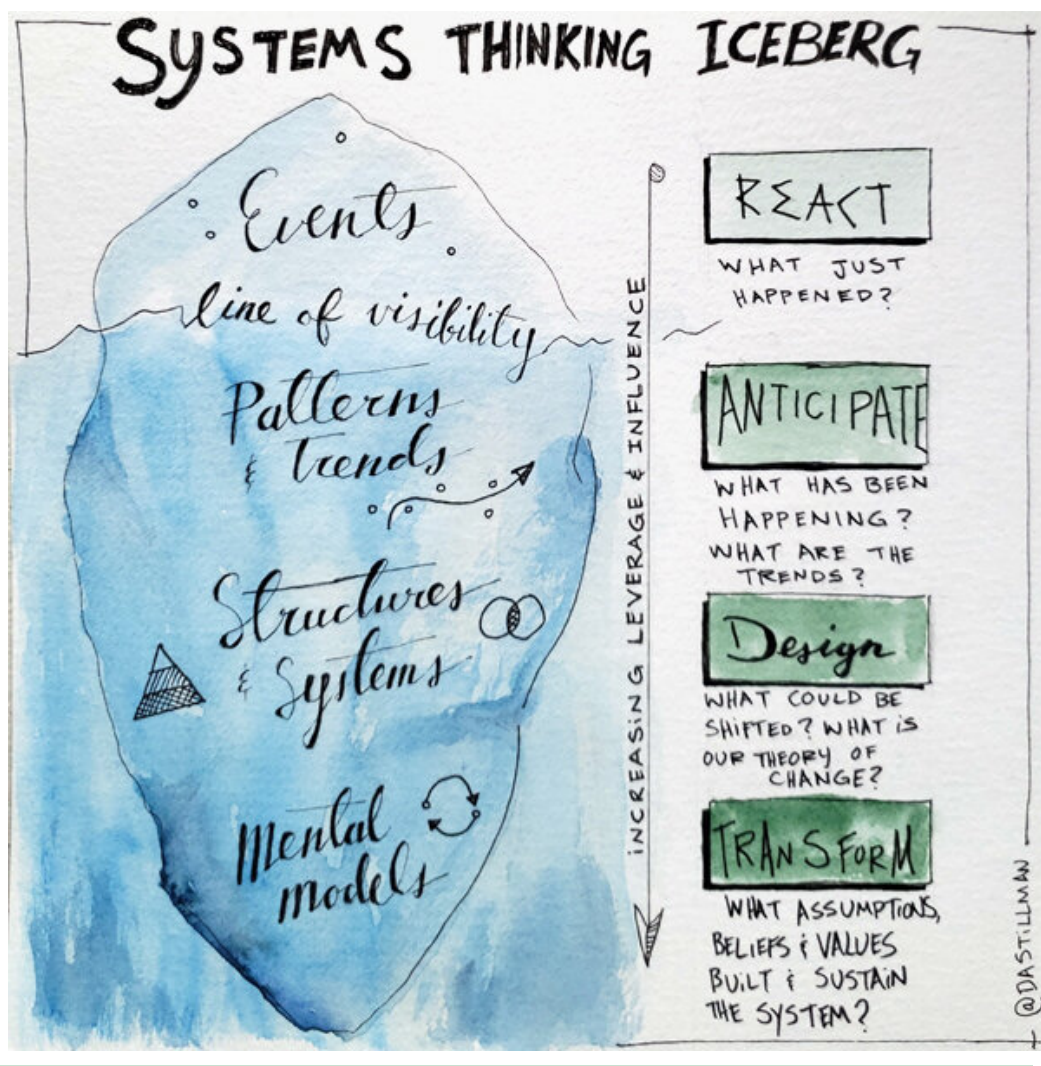 SYSTEMS THINKING ICEBERG
Events
line of visibility
Patterns
& trends
Structures
& Systems
Mental
models
INCREASING LEVERAGE & INFLUENCE
REACT
WHAT JUST
HAPPENED?
ANTICIPATE
WHAT HAS BEEN
HAPPENING?
WHAT ARE THE
TRENDS?
Design
WHAT COULD BE
SHIFTED? WHAT IS
OUR THEORY OF
CHANGE?
TRANSFORM
WHAT ASSUMPTIONS,
BELIEFS & VALUES
BUILT & SUSTAIN
THE SYSTEM?
@DASTILLMAN